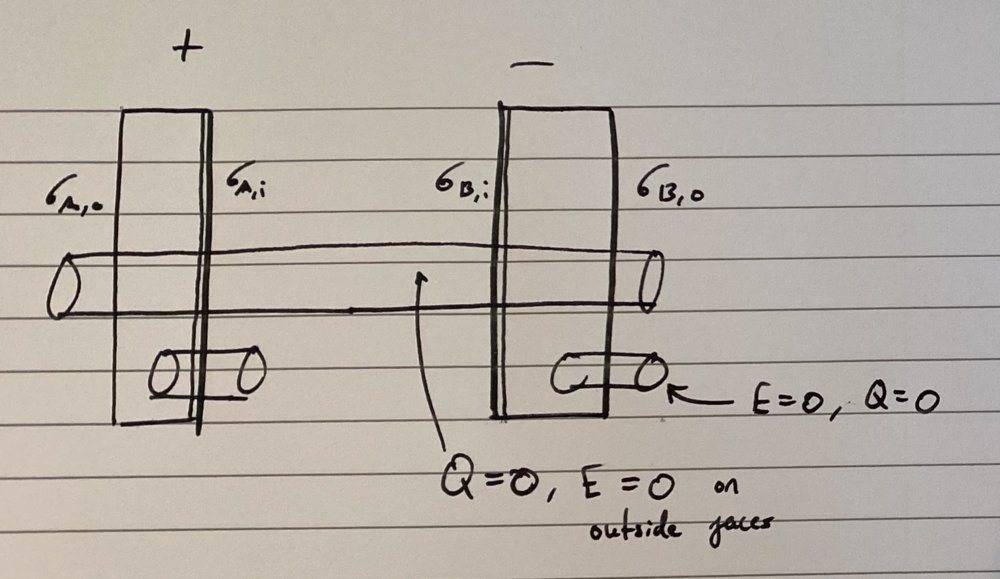 +
−
σA,o
σA,i
σB,i
σB,o
E=0, Q=0
Q=0, E=0 on
outside faces